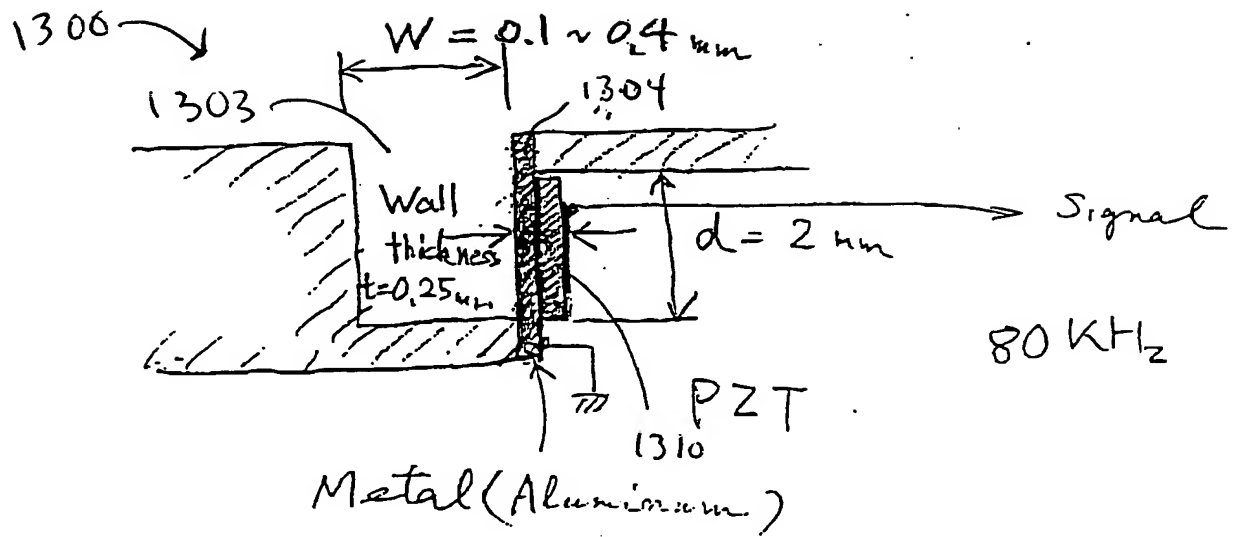 1300
W = 0.1 ~ 0.4 mm
1303
1304
Wall
thickness
t=0.25mm
d = 2 mm
Signal
80 KHz
PZT
1310
Metal (Aluminum)